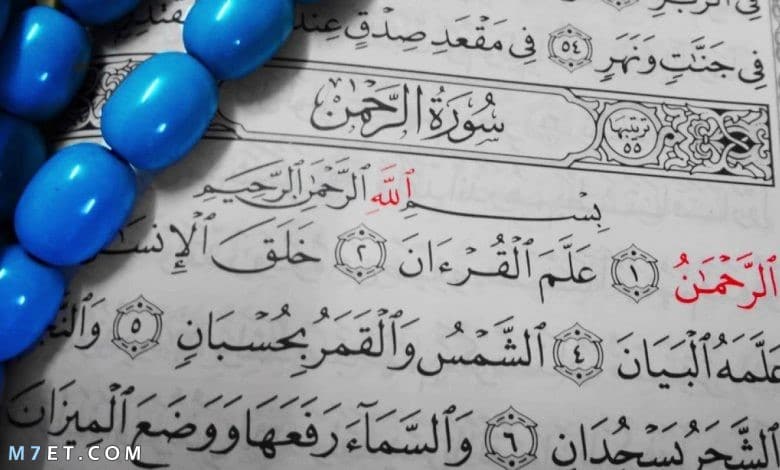 فِى ٱلزُّبُرِ
فِى جَنَّٰتٍ وَنَهَرٍ ٥٤ فِى مَقْعَدِ صِدْقٍ عِندَ
سُورَةُ الرَّحْمٰن
تَرْتِيبُهَا
٥٥
بِسْمِ ٱللَّهِ ٱلرَّحْمَٰنِ ٱلرَّحِيمِ
ٱلرَّحْمَٰنُ ١ عَلَّمَ ٱلْقُرْءَانَ ٢ خَلَقَ ٱلْإِنسَٰ
عَلَّمَهُ ٱلْبَيَانَ ٤ ٱلشَّمْسُ وَٱلْقَمَرُ بِحُسْبَانٍ ٥ وَٱلنَّجْ
ٱلشَّجَرُ يَسْجُدَانِ ٦ وَٱلسَّمَآءَ رَفَعَهَا وَوَضَعَ ٱلْمِيزَانَ
M7ET.COM